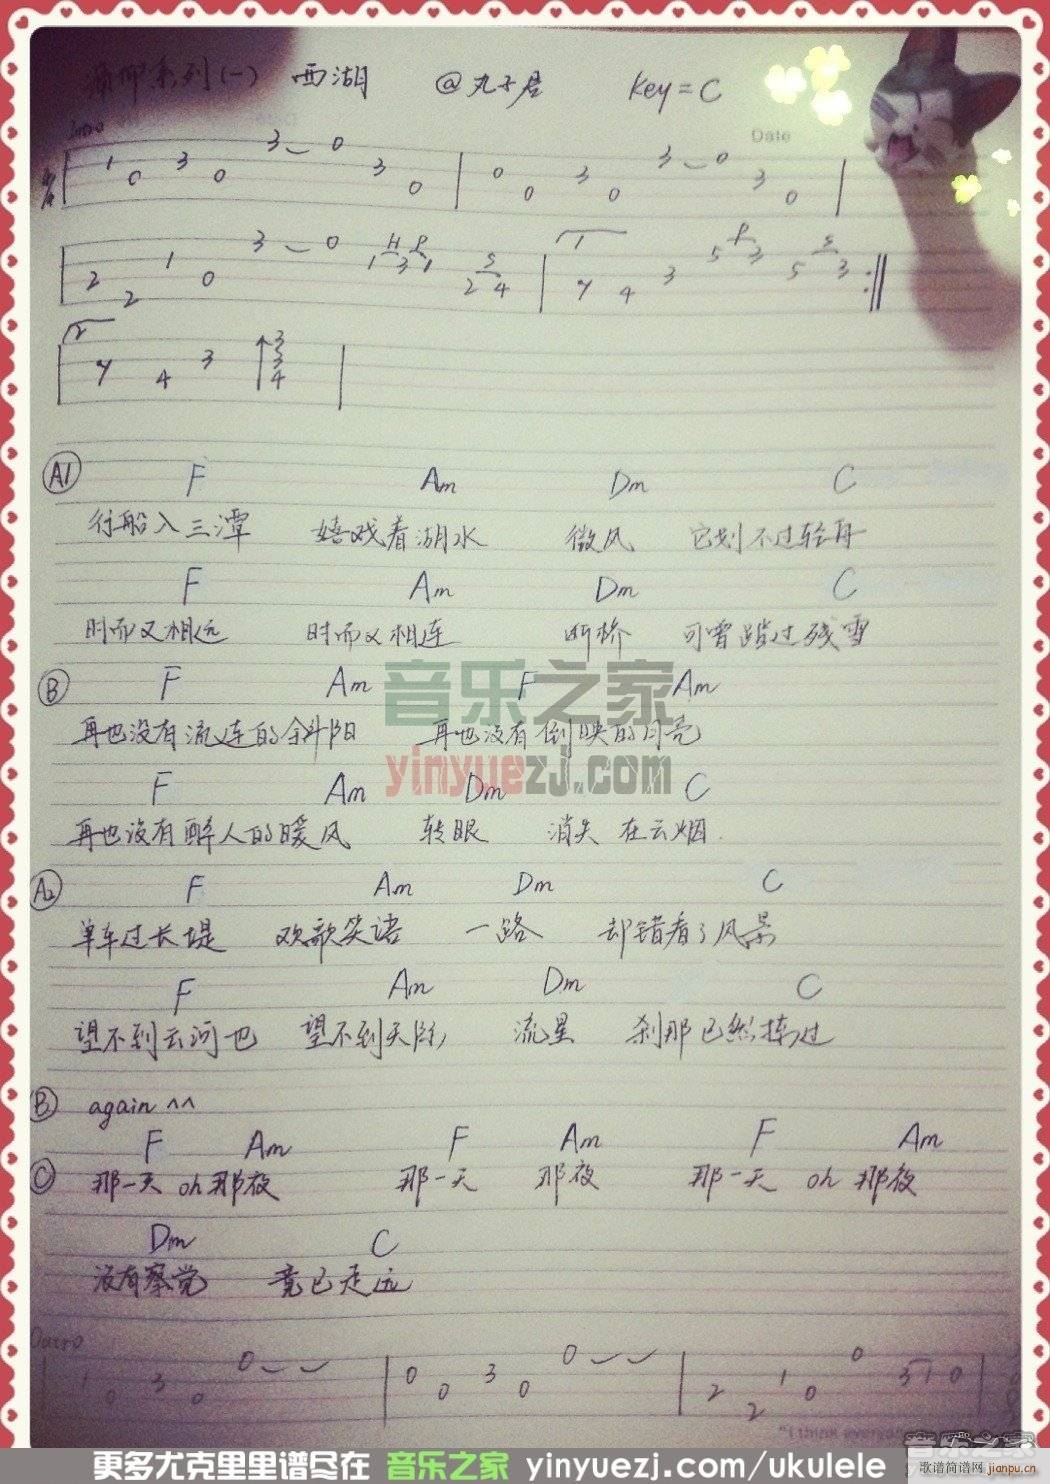 系列(一) 西湖 @丸子君 Key=C
Intro
Date
4/4 1 0 3 0 3 0 3 0 0 0 3 0 3 0 3 0
2 2 1 0 3 0 H P 1 3 1 S 2 4 1 7 4 3 P 5 3 S 5 3
2 7 4 3 3 3 4
A1 F Am Dm C
行船入三潭 嬉戏着湖水 微风 它划不过轻舟
F Am Dm C
时而又相远 时而又相连 断桥 可曾踏过残雪
B F Am F Am
再也没有流连的斜阳 再也没有倒映的月亮
F Am Dm C
再也没有醉人的暖风 转眼 消失 在云烟.
A2 F Am Dm C
单车过长堤 欢歌笑语 一路 却错看了风景
F Am Dm C
望不到云河也 望不到天际 流星 刹那已然掠过
B again ^^
F Am F Am F Am
C 那一天 oh 那夜 那一天 那夜 那一天 oh 那夜
Dm C
没有察觉 竟已走远
Outro
1 0 3 0 0 0 0 3 0 0 2 2 1 0 0 3 1 0
音乐之家
yinyuezj.com
"I think every
音乐之家
歌谱简谱网
jianpu.cn
更多尤克里里谱尽在 音乐之家 yinyuezj.com/ukulele